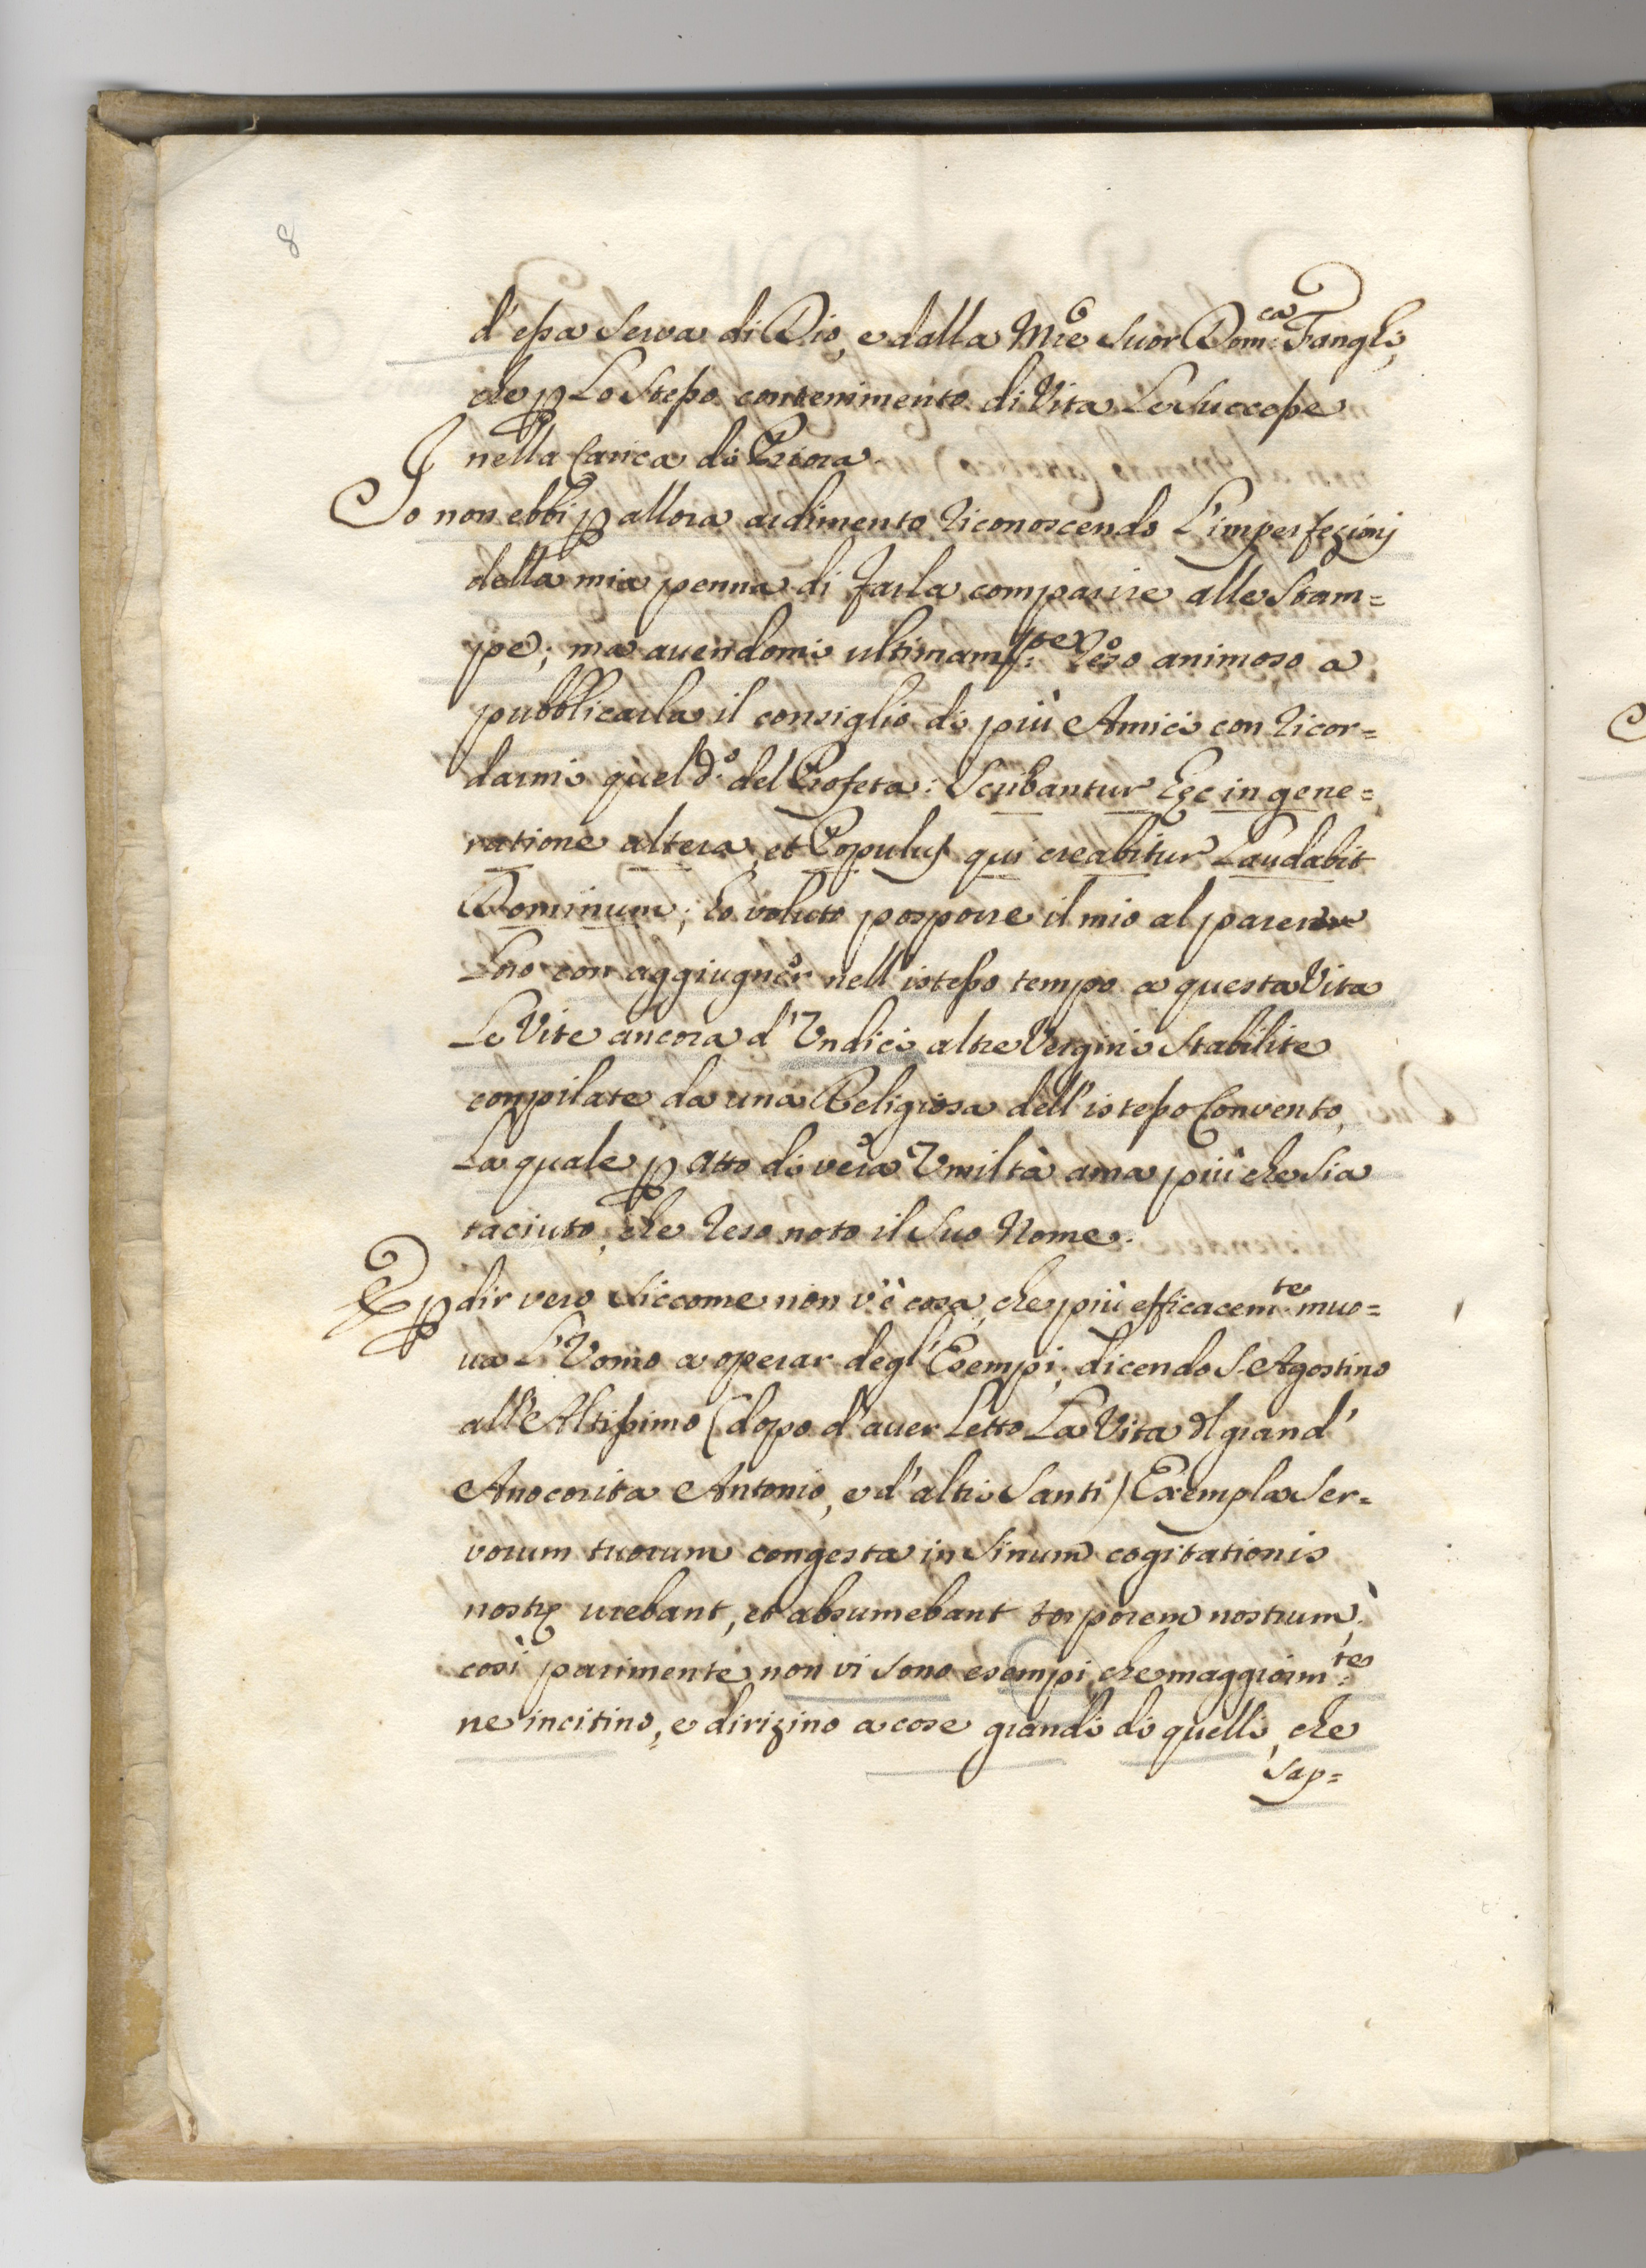 8
d'essa Serva di Dio, e dalla Mre Suor Dom:ca Fangli,
che p Lo Stesso contenimento di Vita Le Successe
nella Carica di Priora.
Io non ebbi p allora ardimento, riconoscendo L'imperfezionj
della mia penna di farla comparire alle Stam=
pe; ma avendomi ultimam:te reso animoso a
pubblicarla il consiglio di più Amici con ricor=
darmi quel d:o del Profeta: Scribantur hęc in gene=
ratione altera, et Populus qui creabitur Laudabit
Dominum; ho voluto posporre il mio al parere
Loro con aggiugner nell'istesso tempo a questa Vita
Le Vite ancora d'Undici altre Vergini Stabilite
compilate da una Religiosa dell'istesso Convento,
La quale p atto di vera Umiltà ama più che Sia
taciuto, che reso noto il Suo Nome.
E p dir vero Siccome non v'è cosa, che più efficacem:te muo=
va L'Uomo a operar degl'Esempi, dicendo S. Agostino
all'Altissimo (dopo d'aver Letto La Vita dl grand'
Anocorita Antonio, e d'altri Santi) Exempla Ser=
vorum tuorum congesta in Sinum cogitationis
nostrę urebant, et absumebant torporem nostrum;
così parimente non vi Sono esempi, che maggiorm:te
ne incitino, e dirizino a cose grandi di quelli, che
Sap=